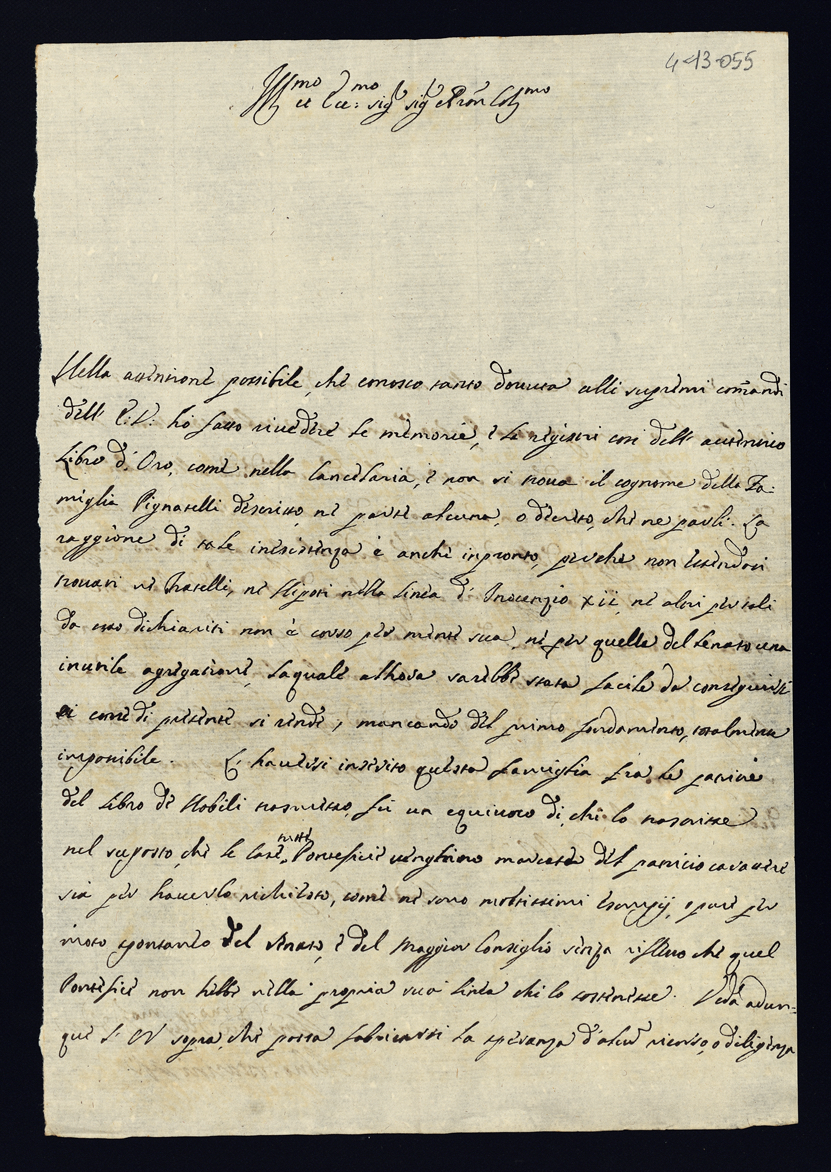 4-13-055
Ill.mo et Ecc.mo sig.r sig.r Pron Col.mo
Nella attentione possibile, che conosco tanto douuta alli supremi comandi
dell' E: V: ho fatto riuedere le memorie, e le registri cosi dell' auttentico
Libro d' Oro, come nella Cancelaria, e non si troua il cognome della Fa:
miglia Pignatelli descritto, ne parte alcuna, o decreto, che ne parli. La
raggione di tale inesistenza è anche in pronto, perche non essendosi
trouati ne Fratelli, ne Nipoti nella Linea d' Inocenzio XII, ne altri per tali
da esso dichiariti non è corso per mente sua, ne per quelle del senato una
inutile agregatione, laquale alhora sarebbe stata facile da conseguirsi
si come di presente si rende, mancando del primo fondamento, totalmente
imposibile. L' hauersi inserito questa famiglia fra le patrizie
del Libro de Nobili trasmesso, fu un equiuoco di, chi lo trascrisse
nel suposto, che le Case tutte Pontefice venghino marcate del patricio carattere
sia per hauerlo richiesto, come ne sono moltissimi esempij, o pure per
moto spontaneo del senato, e del Maggior Consiglio senza rifleso che quel
Pontefice non hebbe nella propria sua linea chi lo sostenesse. Veda adun-
que l' EV sopra, che possa fabricarsi la speranza d' alcun ricorso, o diligenza